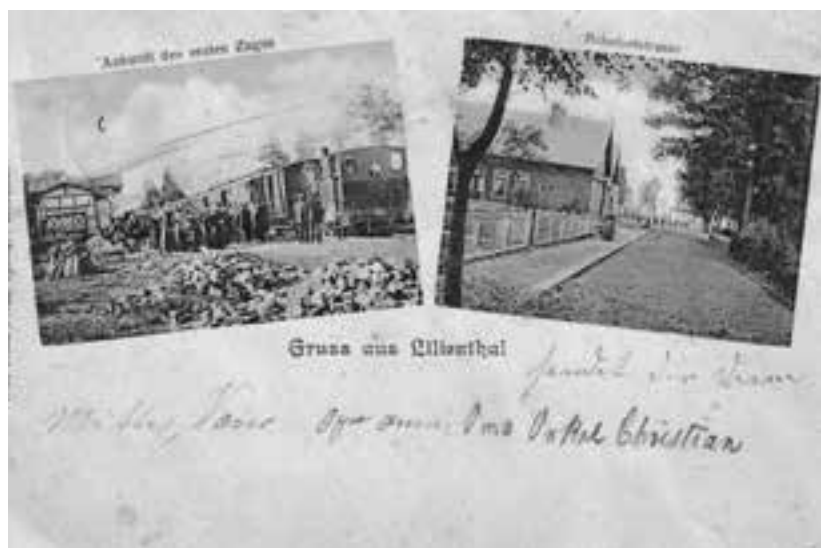 Ankunft des ersten Zuges
Bahnhofstrasse
Gruss aus Lilienthal
sendet dir
Oma Onkel Christian